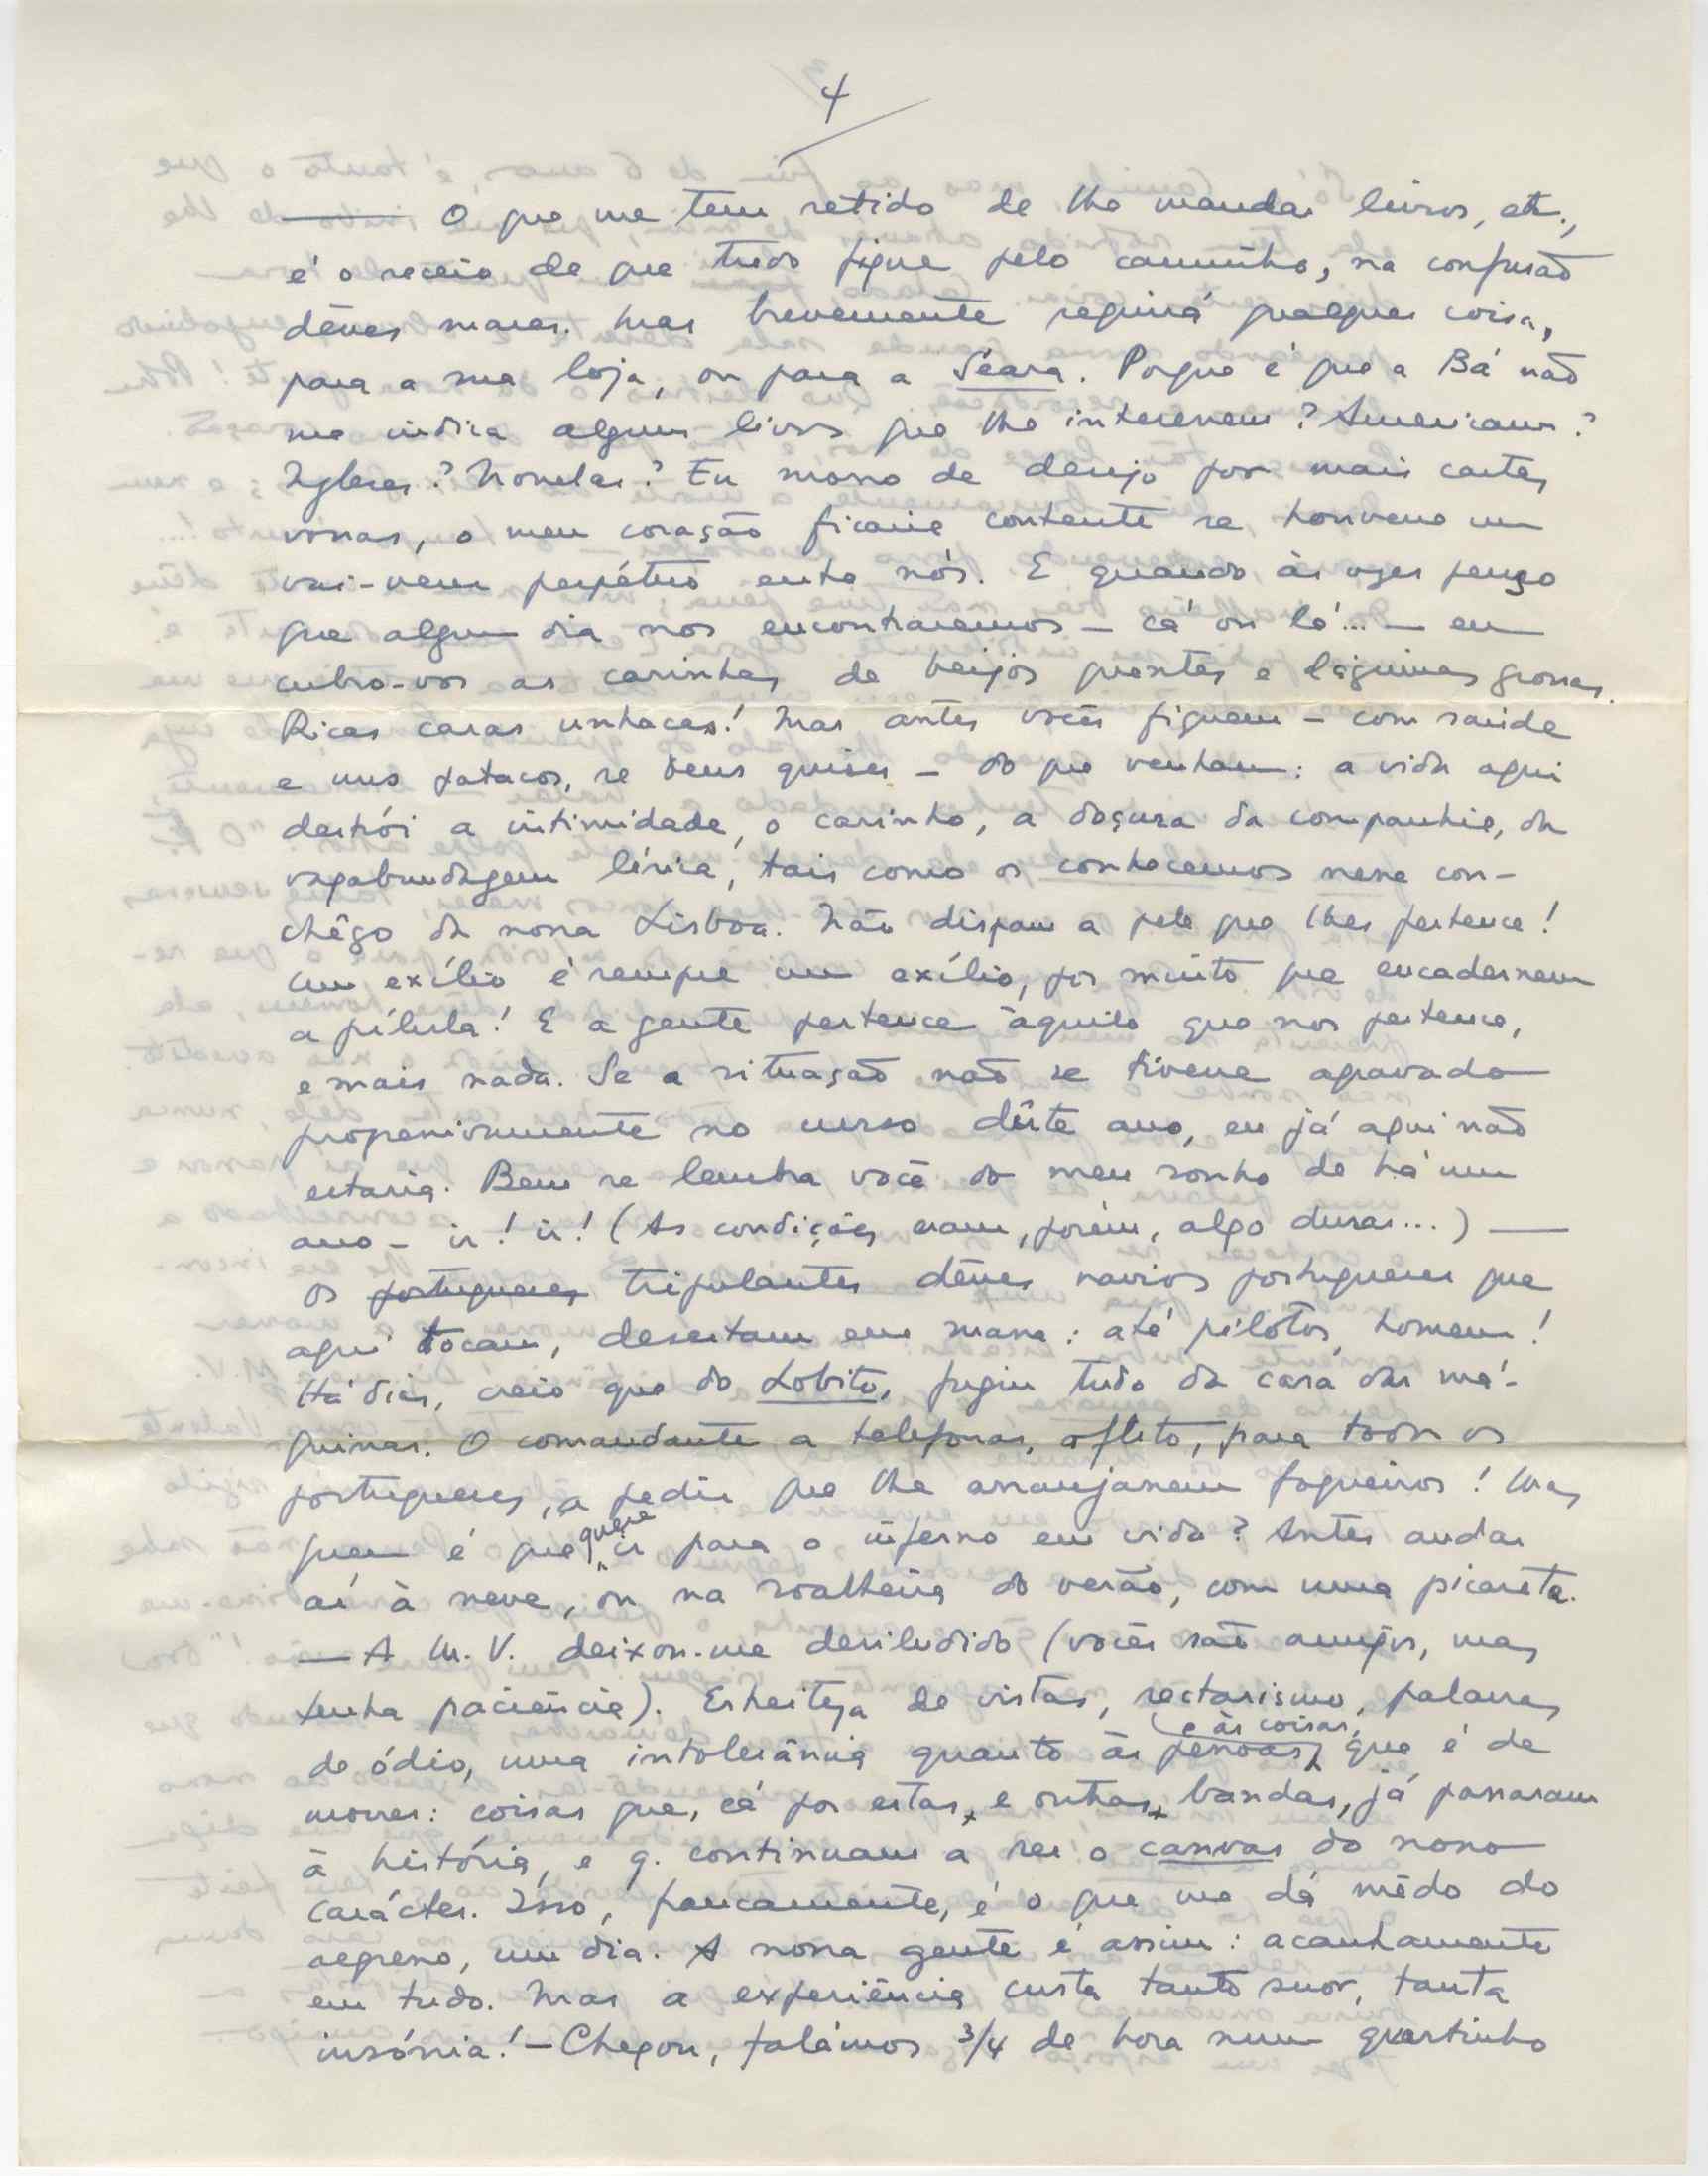 4
— O que me tem retido de lhe mandar livros, etc.,
é o receio de que tudo fique pelo caminho, na confusão
dêsses mares. Mas brevemente seguirá qualquer coisa,
para a sua loja, ou para a Seara. Porque é que a Bá não
me indica alguns livros que lhe interessem? Americanos?
Ingleses? Novelas? Eu morro de desejo por mais cartas
vossas, o meu coração ficaria contente se houvesse um
vai-vem perpétuo entre nós. E quando às vezes penso
que algum dia nos encontraremos — cá ou lá... — eu
cubro-vos as carinhas de beijos quentes e lágrimas grossas.
Ricas caras unhacas! Mas antes vocês fiquem — com saúde
e uns patacos, se Deus quiser — do que venham: a vida aqui
destrói a intimidade, o carinho, a doçura da companhia, da
vagabundagem lírica, tais como os conhecemos nesse con-
chêgo da nossa Lisboa. Não dispam a pele que lhes pertence!
Um exílio é sempre um exílio, por muito que encadernem
a pílula! E a gente pertence àquilo que nos pertence,
e mais nada. Se a situação não se tivesse agravado
progressivamente no curso dêste ano, eu já aqui não
estaria. Bem se lembra você do meu sonho de há um
ano — ir! ir! (As condições eram, porém, algo duras...) —
Os portugueses tripulantes dêsses navios portugueses que
aqui tocam, desertam em massa: até pilotos, homem!
Há dias, creio que do Lobito, fugiu tudo da casa das má-
quinas. O comandante a telefonar, aflito, para todos os
portugueses, a pedir que lhe arranjassem fogueiros! Mas
quem é que quere ir para o inferno em vida? Antes andar
aí à neve, ou na soalheira do verão, com uma picareta.
— A M. V. deixou-me desiludido (vocês são amigos, mas
tenha paciência). Estreiteza de vistas, sectarismo, palavras
de ódio, uma intolerância quanto às pessoas e às coisas, que é de
morrer: coisas que, cá por estas, e outras, bandas, já passaram
à história, e q. continuam a ser o canvas do nosso
carácter. Isso, francamente, é o que me dá mêdo do
regresso, um dia. A nossa gente é assim: acanhamento
em tudo. Mas a experiência custa tanto suor, tanta
insónia! — Chegou, falámos 3/4 de hora num quartinho